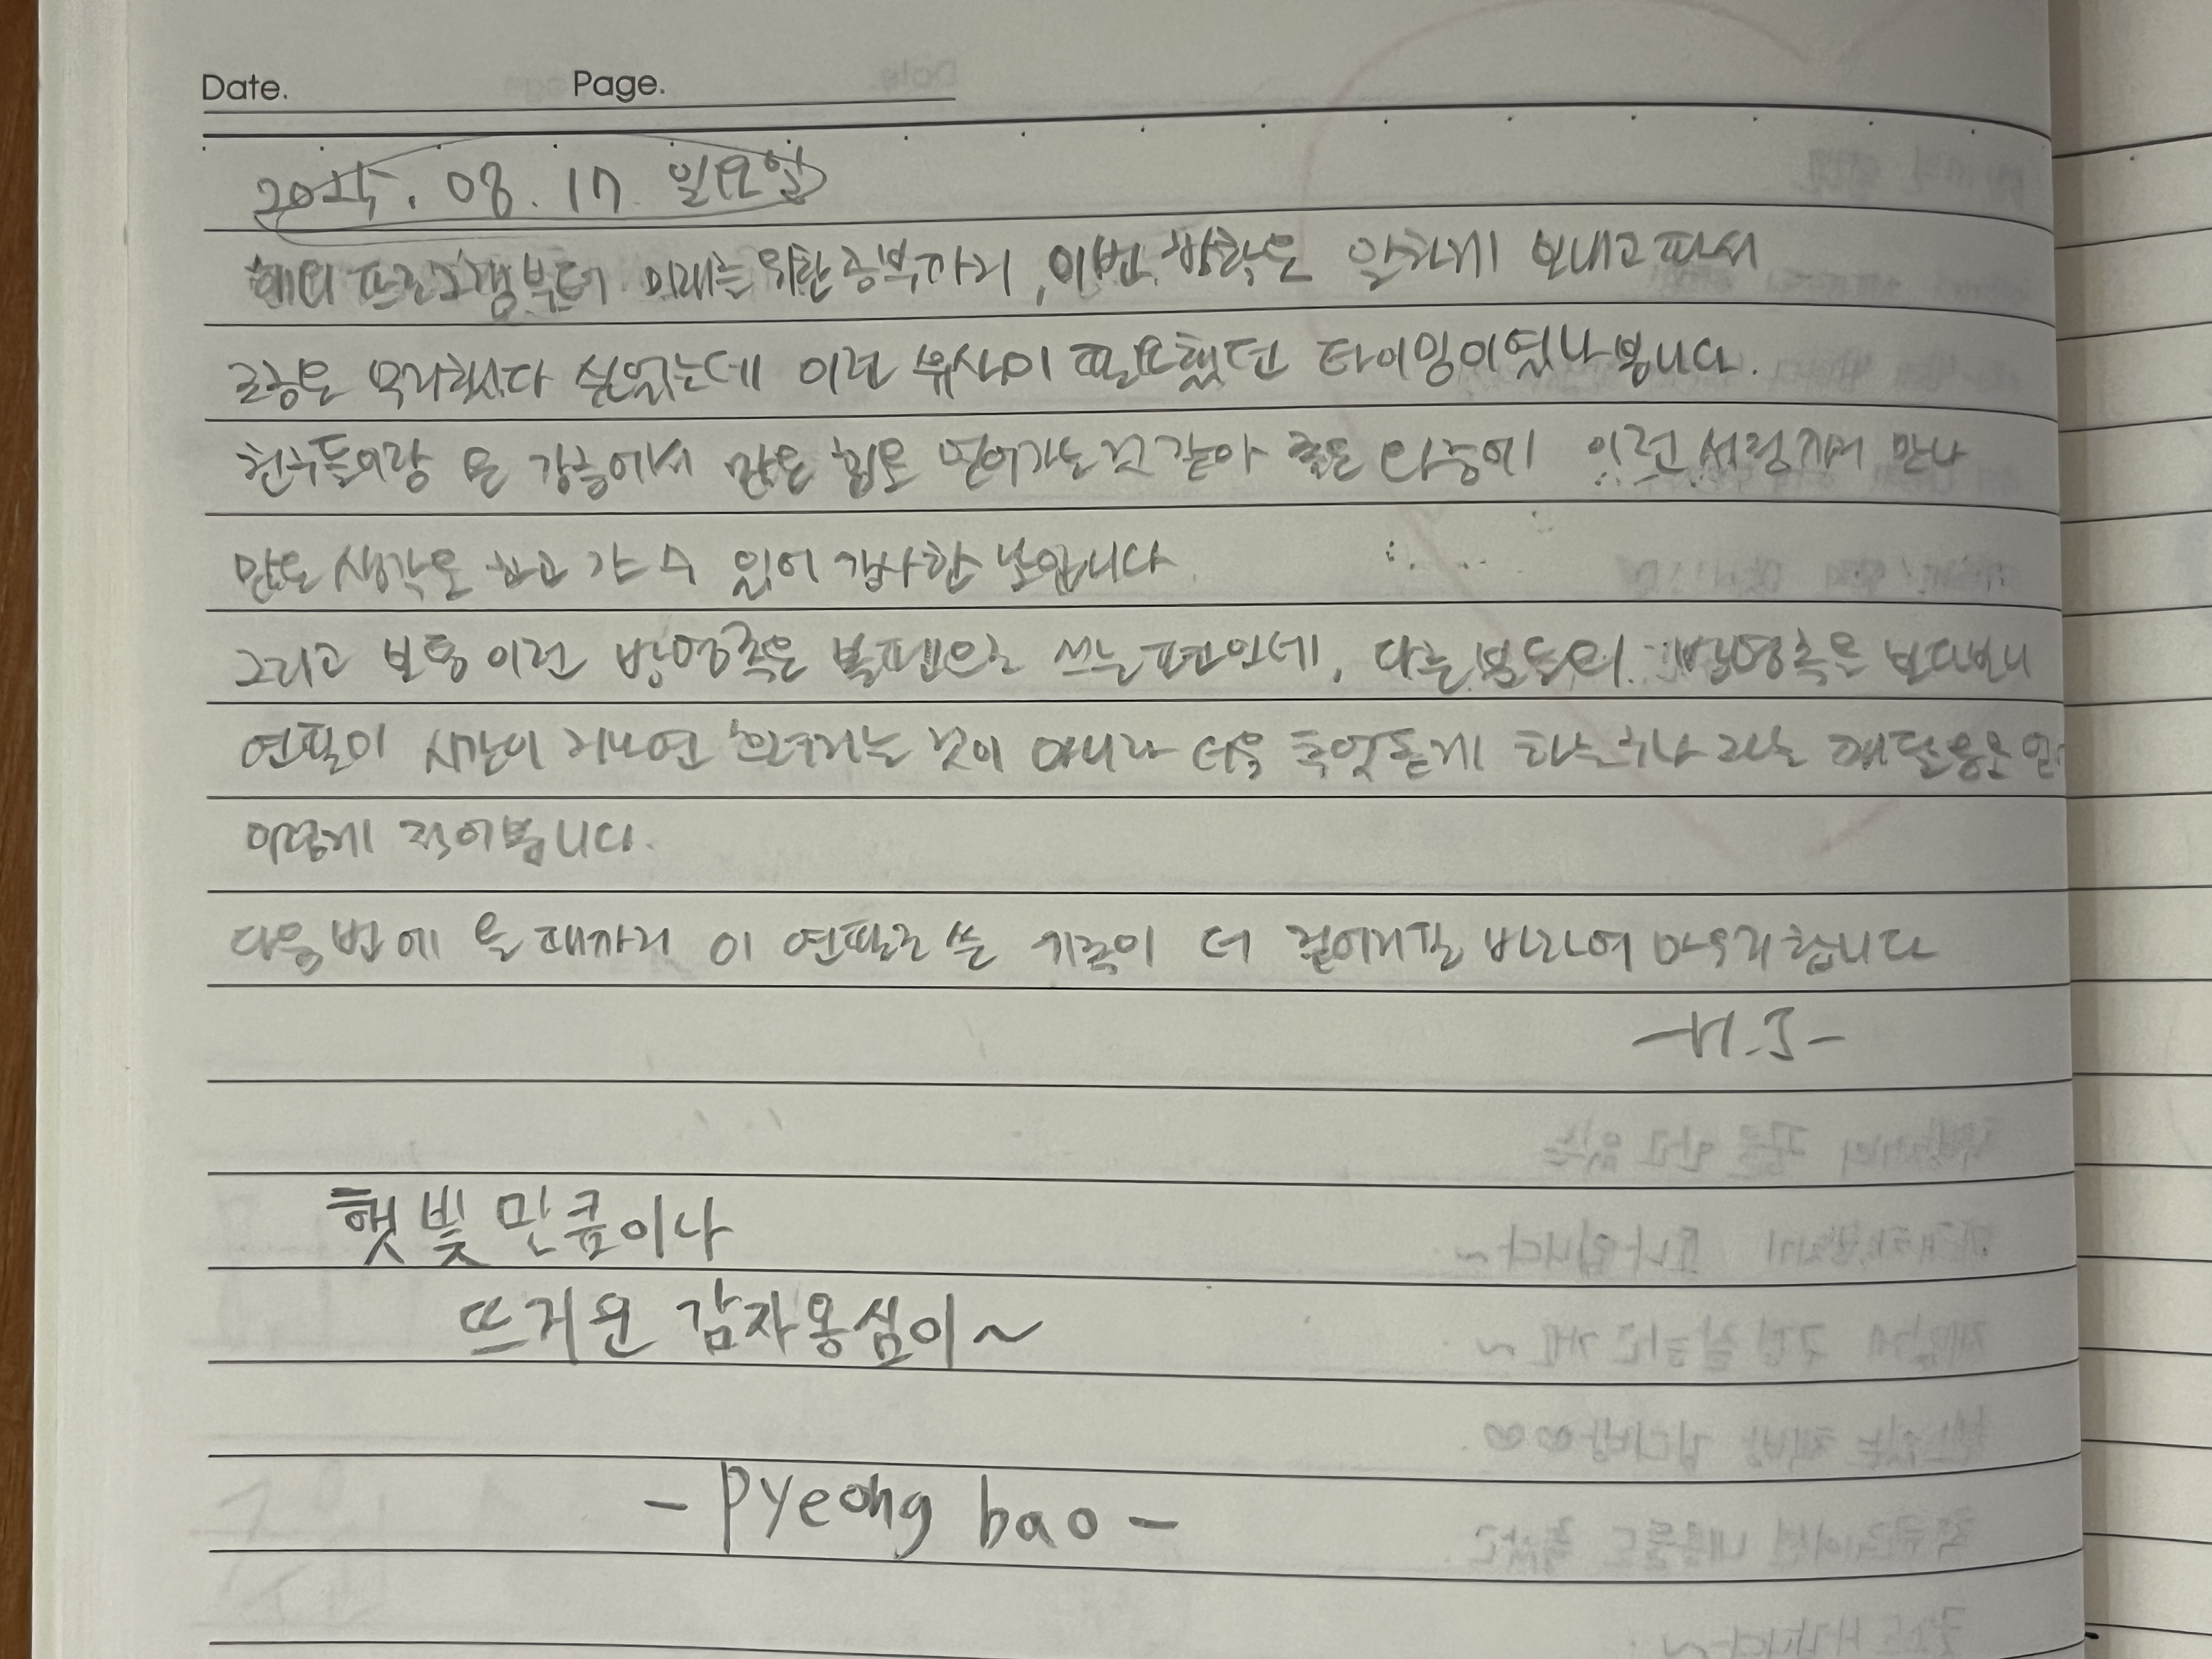 Date. Page.
2025. 08. 17. 일요일
해외 프로그램부터 미래를 위한 공부까지, 이번 방학은 알차게 보내고파서
조금은 무리했다 싶었는데 이런 휴식이 필요했던 타이밍이였나 봅니다.
친구들이랑 온 강릉에서 많은 힘을 얻어가는 것 같아 좋은 와중에 이런 서점까지 만나
많은 생각을 하고 갈 수 있어 감사한 날입니다
그리고 보통 이런 방명록은 볼펜으로 쓰는 편인데, 다른 분들의 방명록을 보다보니
연필이 시간이 지나면 흐려지는 것이 아니라 더욱 짙게 하는구나 라는 깨달음을
이렇게 적어봅니다.
다음번에 올 때까지 이 연필로 쓴 기록이 더 짙어지길 바라며 마무리합니다
-H.J-
햇빛만큼이나
뜨거운 감자옹심이~
- Pyeong bao -